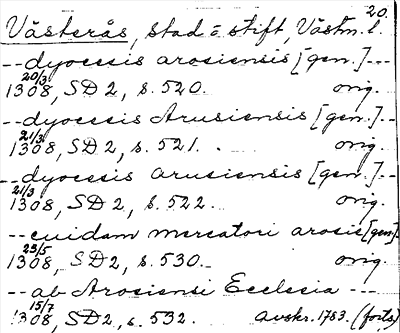 20.
Västerås, stad o. stift, Västm. l.
--dyocesis arosiensis [gen.]---
1308 20/3, SD 2, s. 520. orig.
--dyocesis Arusiensis [gen.]--
1308 21/3, SD 2, s. 521. orig.
--dyocesis arusiensis [gen.]--
1308 21/3, SD 2, s. 522. orig.
--cuidam mercatori arosis [gen.]
1308 23/5, SD 2, s. 530. orig.
--ab Arosiensi Ecclesia ---
1308 15/7, SD 2, s. 532. avskr. 1783. (forts.)